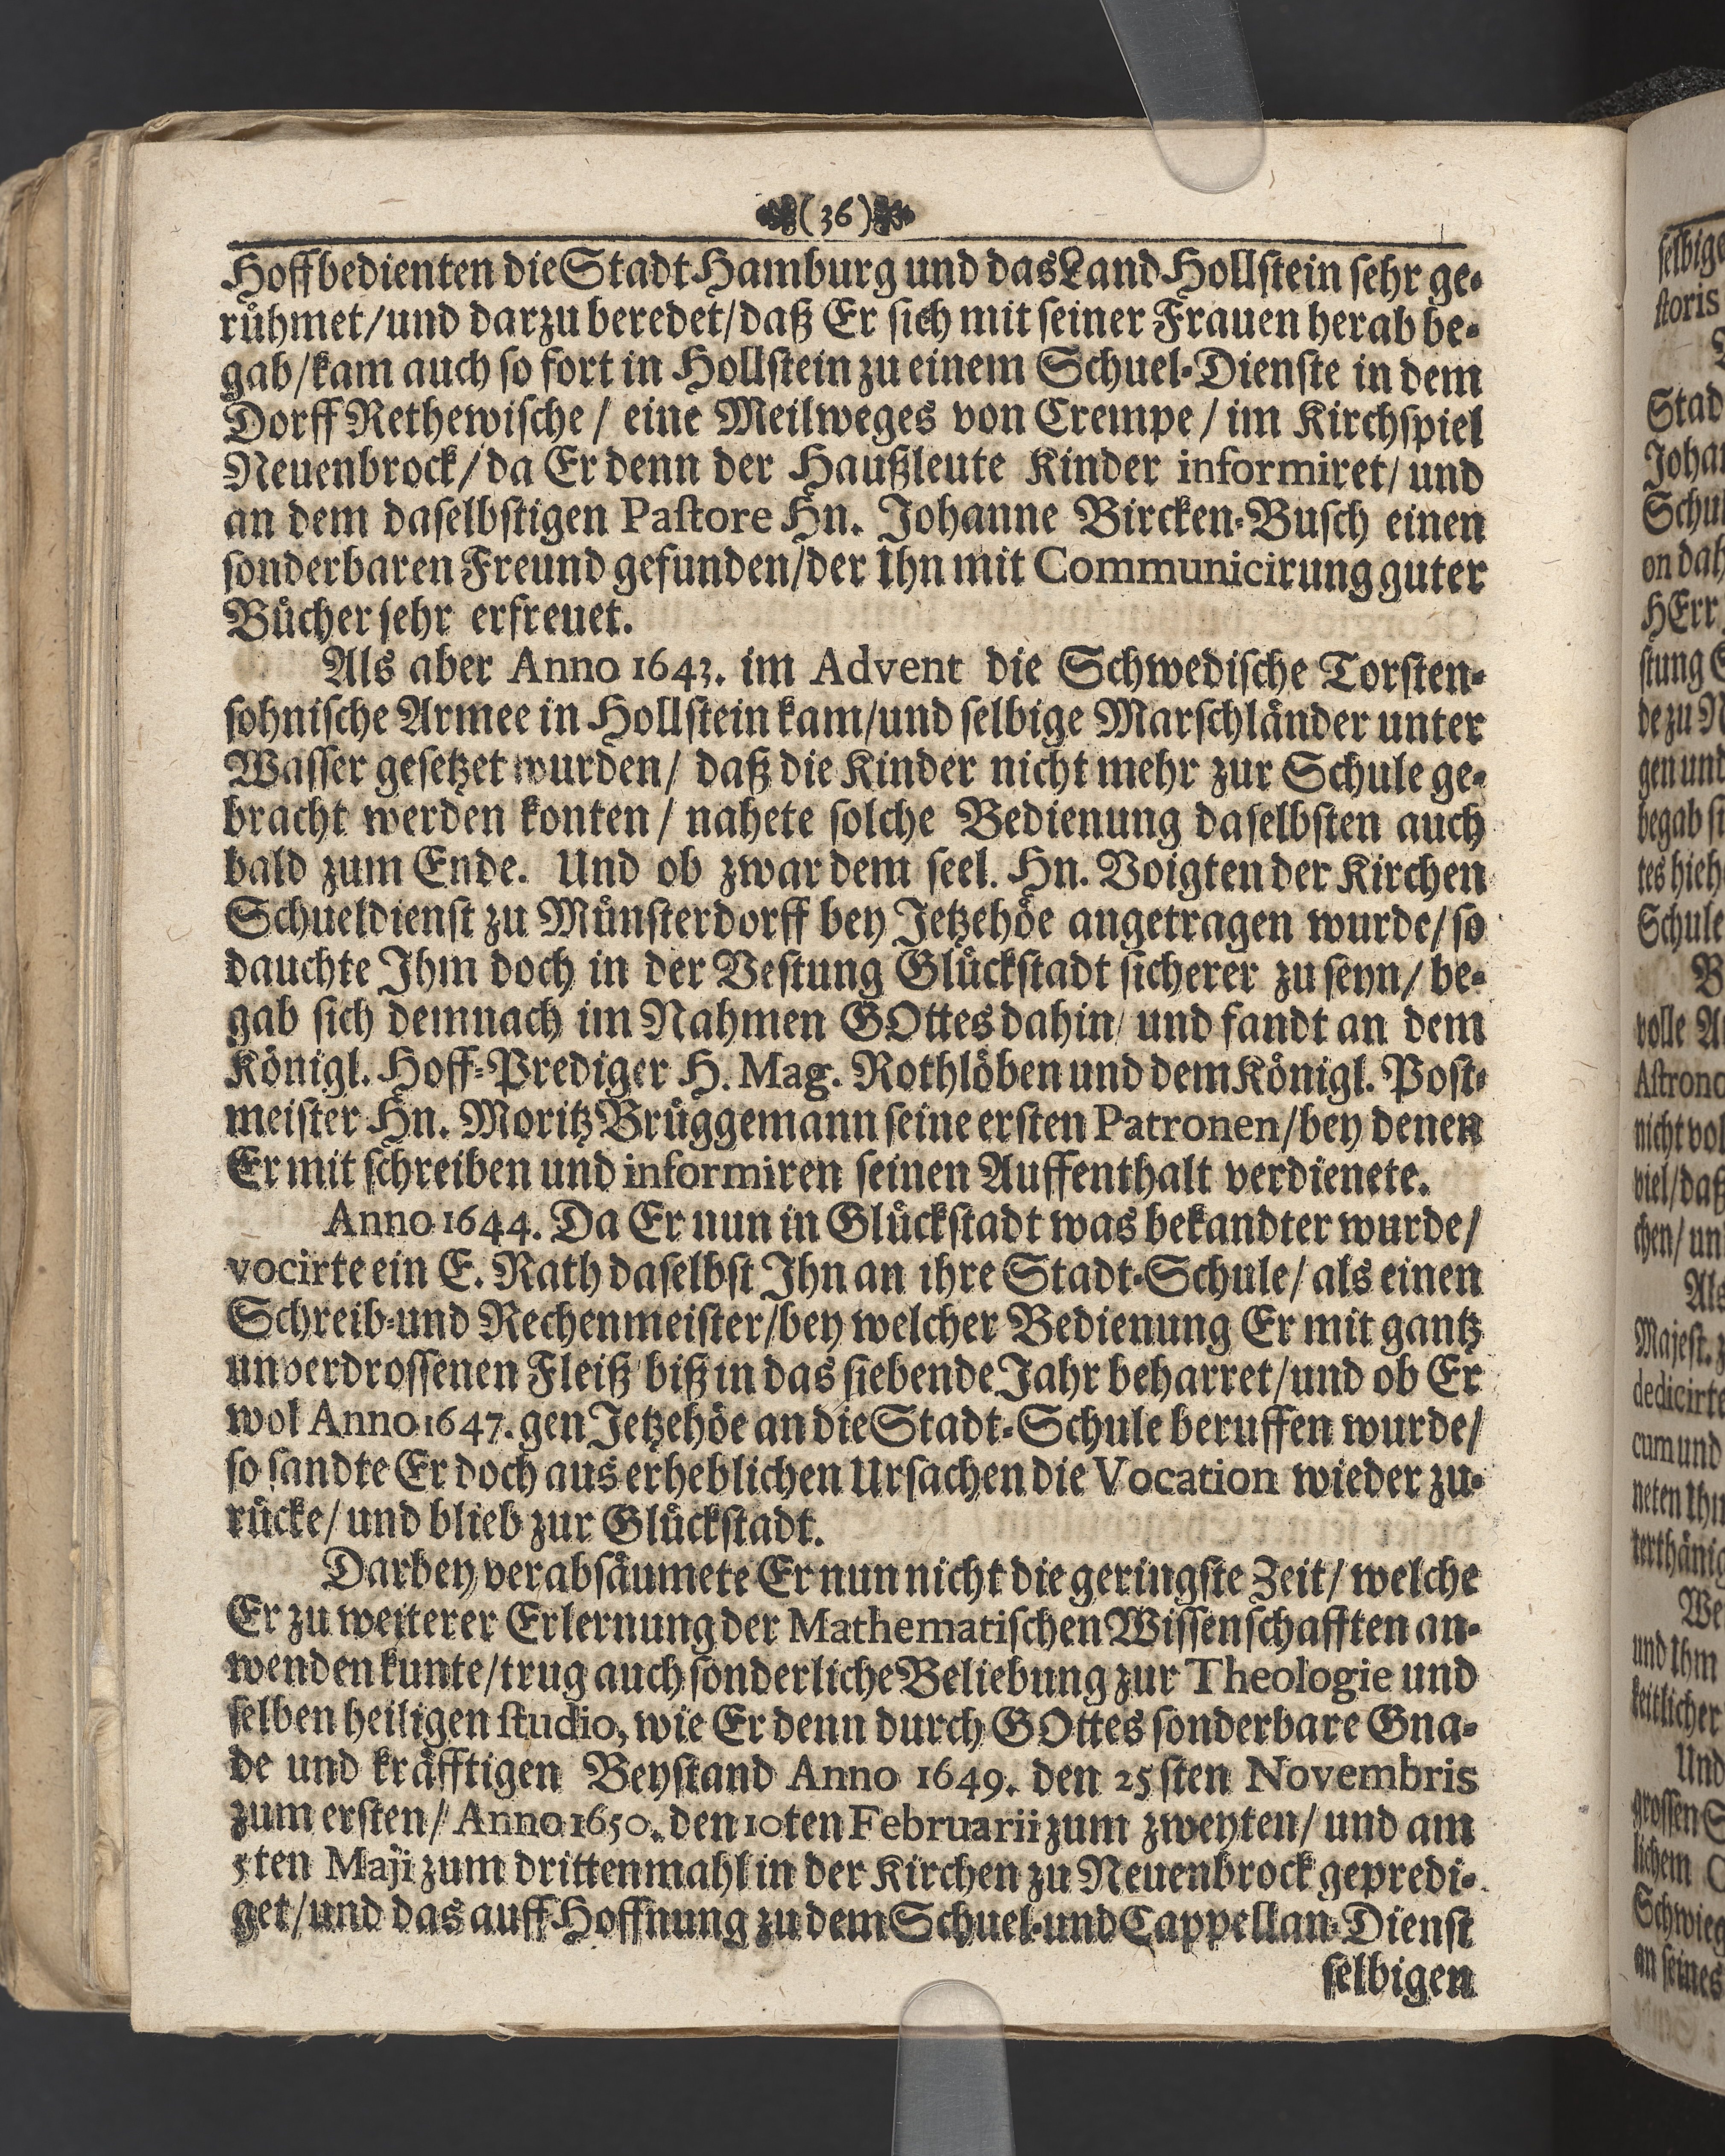 (36)
Hoffbedienten die Stadt Hamburg und das Land Hollstein sehr ge-
rühmet/und darzu beredet/daß Er sich mit seiner Frauen herab be-
gab/kam auch so fort in Hollstein zu einem Schuel-Dienste in dem
Dorff Rethewische/ eine Meilweges von Crempe/ im Kirchspiel
Neuenbrock/da Er denn der Haußleute Kinder informiret/ und
an dem daselbstigen Pastore Hn. Johanne Bircken-Busch einen
sonderbaren Freund gefunden/der Ihn mit Communicirung guter
Bücher sehr erfreuet.
Als aber Anno 1643. im Advent die Schwedische Torsten-
sohnische Armee in Hollstein kam/und selbige Marschländer unter
Wasser gesetzet wurden/ daß die Kinder nicht mehr zur Schule ge-
bracht werden konten/ nahete solche Bedienung daselbsten auch
bald zum Ende. Und ob zwar dem seel. Hn. Voigten der Kirchen
Schueldienst zu Münsterdorff bey Jetzehöe angetragen wurde/so
dauchte Ihm doch in der Vestung Glückstadt sicherer zu seyn/ be-
gab sich demnach im Nahmen GOttes dahin/ und fandt an dem
Königl. Hoff-Prediger H. Mag. Rothlöben und dem Königl. Post-
meister Hn. Moritz Brüggemann seine ersten Patronen/bey denen
Er mit schreiben und informiren seinen Auffenthalt verdienete.
Anno 1644. Da Er nun in Glückstadt was bekandter wurde/
vocirte ein E. Rath daselbst Ihn an ihre Stadt-Schule/ als einen
Schreib-und Rechenmeister/bey welcher Bedienung Er mit gantz
unverdrossenen Fleiß biß in das siebende Jahr beharret/und ob Er
wol Anno 1647. gen Jetzehöe an die Stadt-Schule beruffen wurde/
so sandte Er doch aus erheblichen Ursachen die Vocation wieder zu-
rücke/ und blieb zur Glückstadt.
Darbey verabsäumete Er nun nicht die geringste Zeit/ welche
Er zu weiterer Erlernung der Mathematischen Wissenschafften an-
wenden kunte/trug auch sonderliche Beliebung zur Theologie und
selben heiligen studio, wie Er denn durch GOttes sonderbare Gna-
de und kräfftigen Beystand Anno 1649. den 25sten Novembris
zum ersten/ Anno 1650. den 10ten Februarii zum zweyten/ und am
5ten Maji zum drittenmahl in der Kirchen zu Neuenbrock gepredi-
get/und das auff Hoffnung zu dem Schuel-und Cappellan-Dienst
selbigen